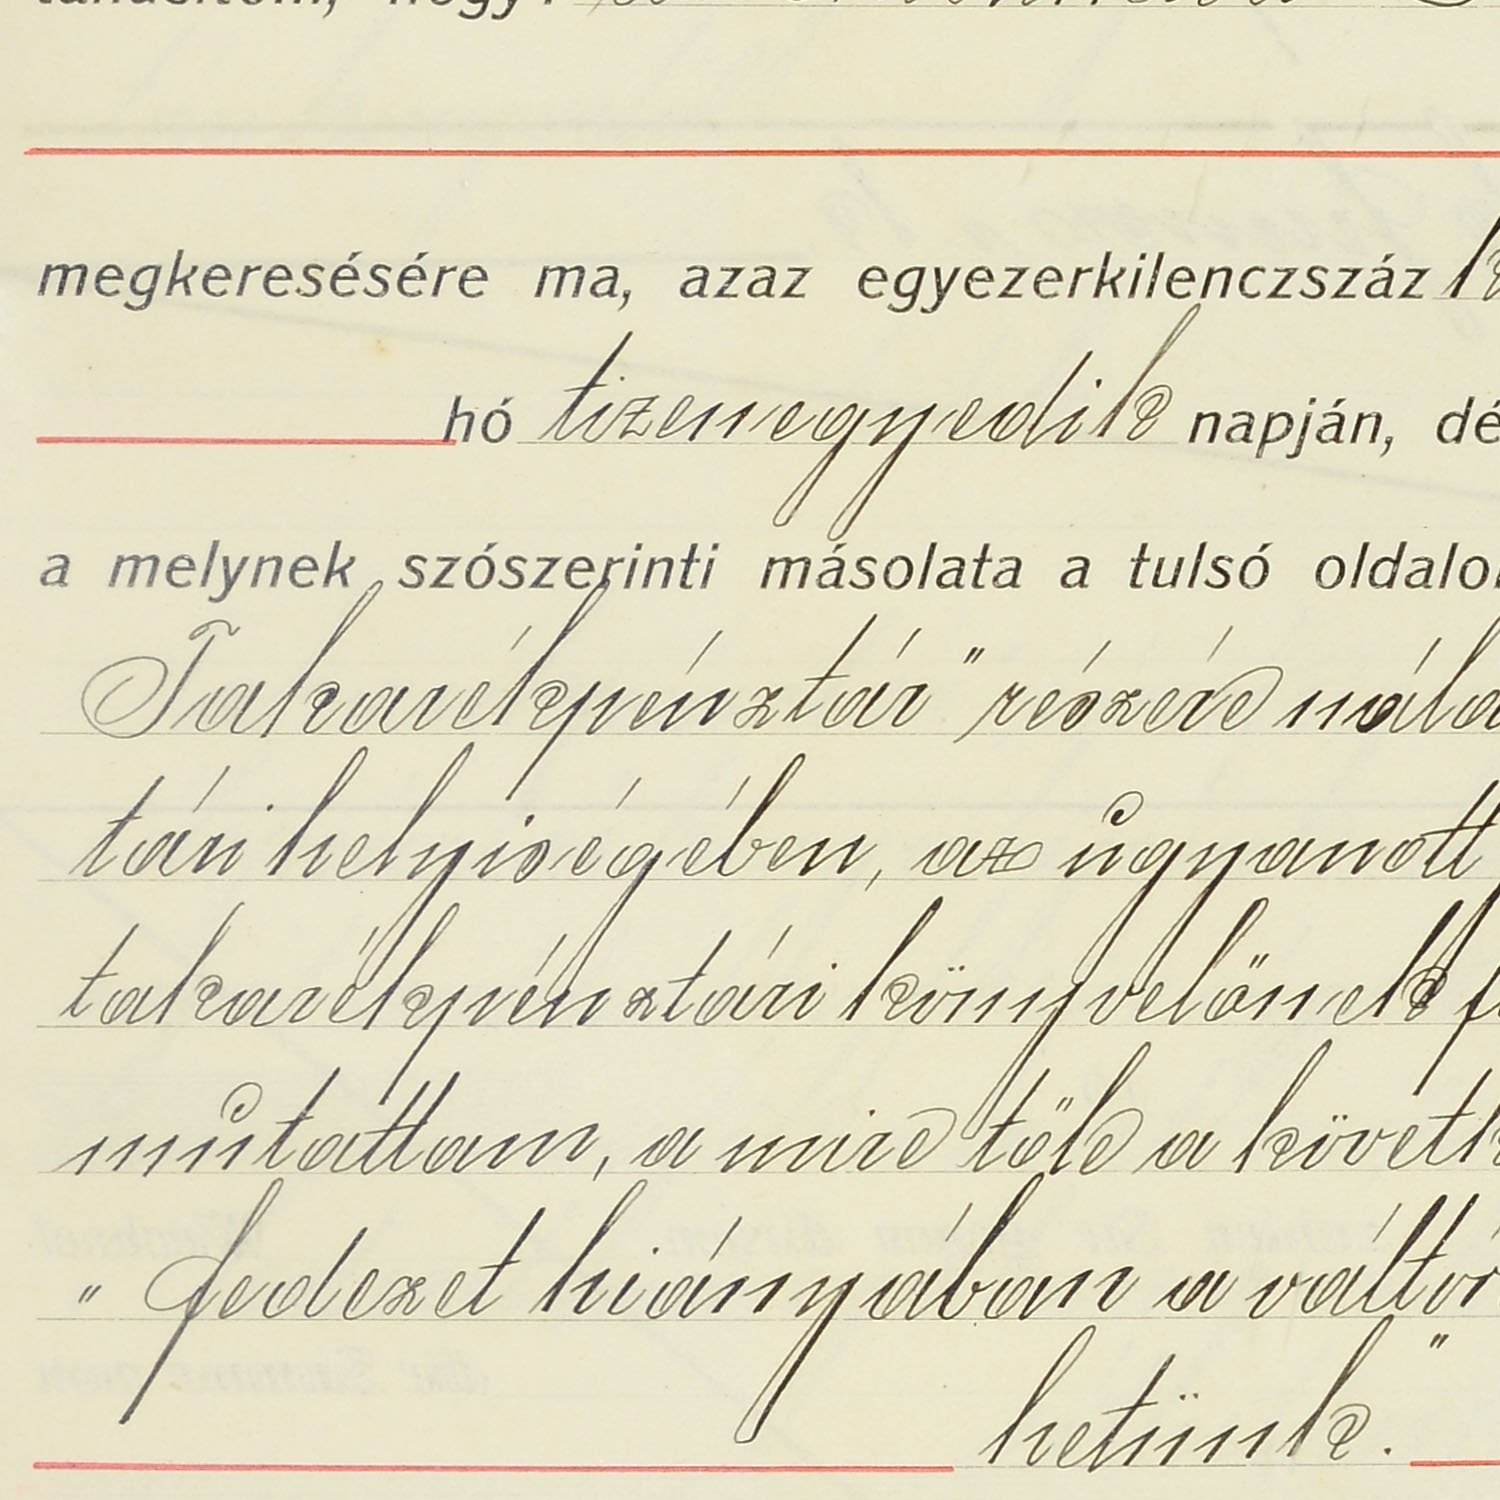 hogy
megkeresésére ma, azaz egyezerkilenczszáz
hó tizenegyedik napján, dé
a melynek szószerinti másolata a tulsó oldalon
Takarékpénztár" részére nála
tári helyiségében, az ugyanott
takarékpénztári könyvelőnek
mutattam, a mire tőle a követk
"Fedezet hiányában a váltó
hetünk."